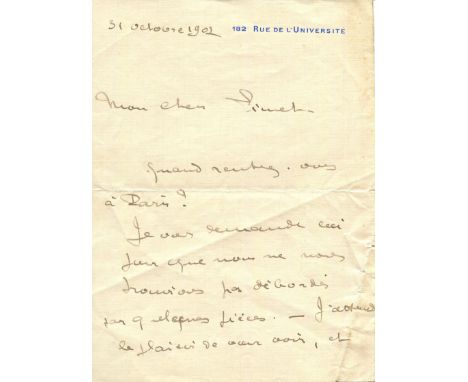 31 octobre 1902 182 RUE DE L'UNIVERSITÉ
Mon cher
Quand rentrez-vous
à Paris?
Je vous demande ceci
pour que nous ne nous
trouvions pas débordés
par quelques pièces. — J'attend
le plaisir de vous voir, et